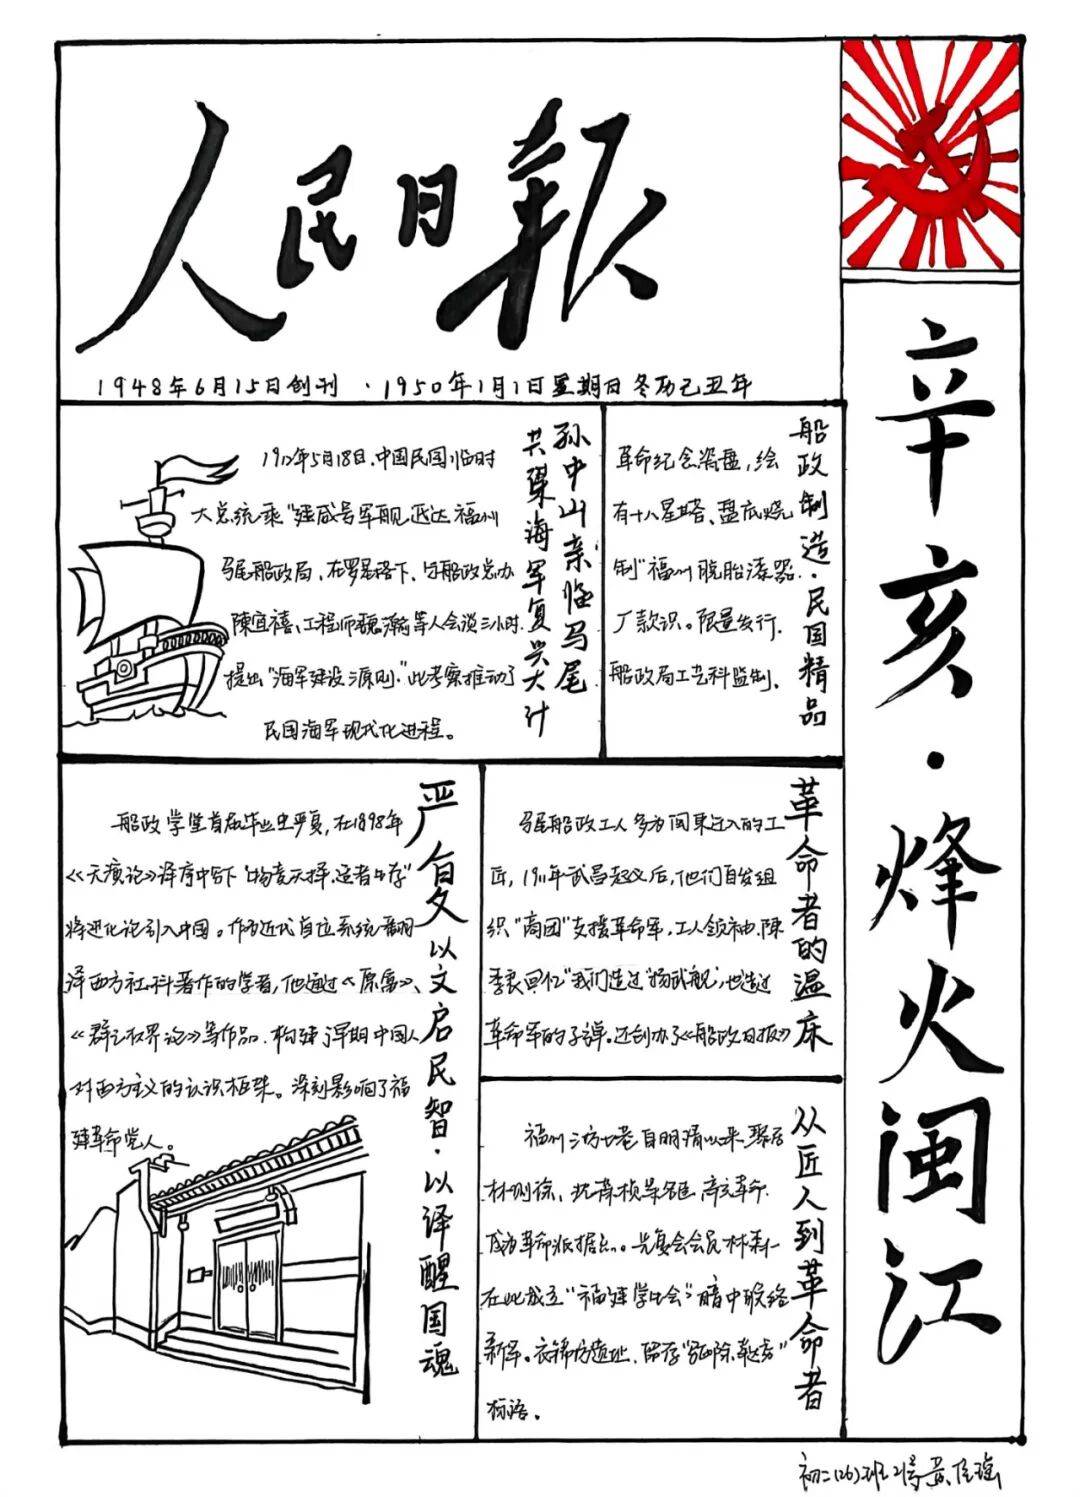 人民日报
1948年6月15日创刊 · 1950年1月1日星期日冬历己丑年
辛亥·烽火闽江
孙中山亲临马尾
共渠海军复兴大计
1912年5月18日,中国民国临时
大总统乘"强威号军舰抵达福州
马尾船政局,在罗星塔下,与船政总办
陳宜禧、工程师魏瀚等人会谈三小时.
提出"海军建设三原则."此考察推动了
民国海军现代化进程。
船政制造·民国精品
革命纪念瓷盘,绘
有十八星旗、盘底烧
制"福州脱胎漆器
厂款识。限量发行.
船政局工艺科监制.
严复以文启民智·以译醒国魂
船政学堂首届毕业生严复,在1898年
《天演论》译序中写下"物竞天择,适者生存"
将进化论引入中国。作为近代首位系统翻
译西方社科著作的学者,他通过《原富》、
《群己权界论》等作品,构建了早期中国人
对西方主义的认识框架。深刻影响了福
建革命党人。
革命者的温床
马尾船政工人多为闽东迁入的工
匠,1911年武昌起义后,他们自发组
织"高团"支援革命军,工人领袖陳
季良回忆"我们造过'扬武舰',也造过
革命军的子弹。还创办了《船政日报》
从匠人到革命者
福州三坊七巷自明清以来,聚居
林则徐、沈葆桢等名臣,辛亥革命
成为革命派据点。光复会会员林
在此成立"福建学生会",暗中联络
新军。衣锦坊遗址,留存"
标语。
初二(26)班 21号黄佳瑶